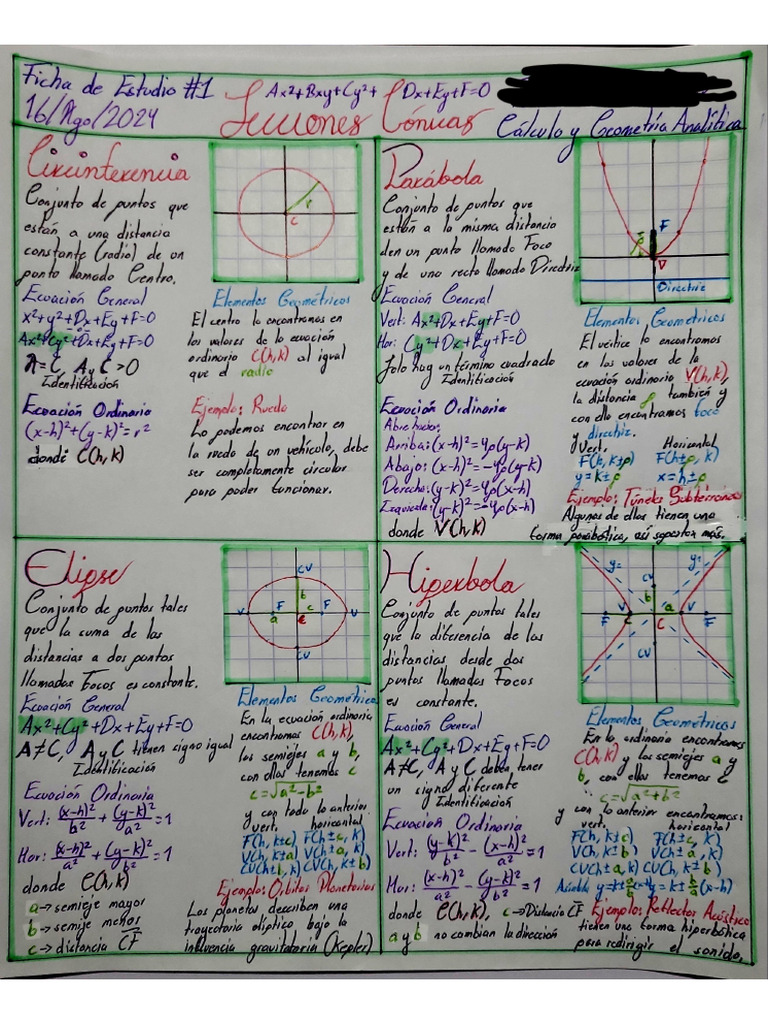 Ficha de Estudio #1
16/Ago/2024
Ax²+Bxy+Cy²+Dx+Ey+F=0
Secciones Cónicas
Cálculo y Geometría Analítica
Circunferencia
Conjunto de puntos que
están a una distancia
constante (radio) de un
punto llamado Centro.
Ecuación General
x²+y²+Dx+Ey+F=0
Ax²+Cy²+Dx+Ey+F=0
A=C, A y C>0
Identificación
Ecuación Ordinaria
(x-h)²+(y-k)²=r²
donde C(h,k)
r
C
Elementos Geométricos
El centro lo encontramos en
los valores de la ecuación
ordinario C(h,k) al igual
que el radio
Ejemplo: Rueda
Lo podemos encontrar en
la rueda de un vehículo, debe
ser completamente circular
para poder funcionar.
Parábola
Conjunto de puntos que
están a la misma distancia
den un punto llamado Foco
y de una recta llamada Directriz
Ecuación General
Vert: Ax²+Dx+Ey+F=0
Hor: Cy²+Dx+Ey+F=0
Solo hay un término cuadrado
Identificación
Ecuación Ordinaria
Abre hacia:
Arriba: (x-h)²=4p(y-k)
Abajo: (x-h)²=-4p(y-k)
Derecha: (y-k)²=4p(x-h)
Izquierda: (y-k)²=-4p(x-h)
donde V(h,k)
F
P
V
Directriz
Elementos Geométricos
El vértice lo encontramos
en los valores de la
ecuación ordinario V(h,k),
la distancia p también y
con ello encontramos foco
y directriz.
Vert. Horizontal
F(h,k±p) F(h±p,k)
y=k±p x=h±p
Ejemplo: Túneles Subterráneos
Algunas de ellos tienen una
forma parabólica, así soportan más.
Elipse
Conjunto de puntos tales
que la suma de las
distancias a dos puntos
llamadas Focos es constante.
Ecuación General
Ax²+Cy²+Dx+Ey+F=0
A≠C, A y C tienen signo igual
Identificación
Ecuación Ordinaria
Vert: (x-h)²/b² + (y-k)²/a² =1
Hor: (x-h)²/a² + (y-k)²/b² =1
donde C(h,k)
a→semieje mayor
b→semieje menor
c→distancia CF
CV
b
V F c F V
a C
CV
Elementos Geométricos
En la ecuación ordinaria
encontramos C(h,k),
los semiejes a y b,
con ellos tenemos c
c=√a²-b²
y con todo lo anterior
vert. horizontal
F(h,k±c) F(h±c,k)
V(h,k±a) V(h±a,k)
CV(h±b,k) CV(h,k±b)
Ejemplo: Orbitas Planetarias
Los planetas describen una
trayectoria elíptico bajo la
influencia gravitatoria (Kepler)
Hipérbola
Conjunto de puntos tales
que la diferencia de las
distancias desde dos
puntos llamadas Focos
es constante.
Ecuación General
Ax²+Cy²+Dx+Ey+F=0
A≠C, A y C deben tener
un signo diferente
Identificación
Ecuación Ordinaria
Vert: (y-k)²/b² - (x-h)²/a² =1
Hor: (x-h)²/a² - (y-k)²/b² =1
donde C(h,k), c→Distancia CF
a y b no cambian la dirección
y= y=
CV
b a
F V C V F
CV
Elementos Geométricos
En la ordinario encontramos
C(h,k) y los semiejes a y
b, con ellos tenemos c
c=√a²+b²
y con lo anterior encontramos:
vert. horizontal
F(h,k±c) F(h±c,k)
V(h,k±b) V(h±a,k)
CV(h±a,k) CV(h,k±b)
Ejemplo: Reflector Acústico
tienen una forma hiperbólica
para redirigir el sonido.